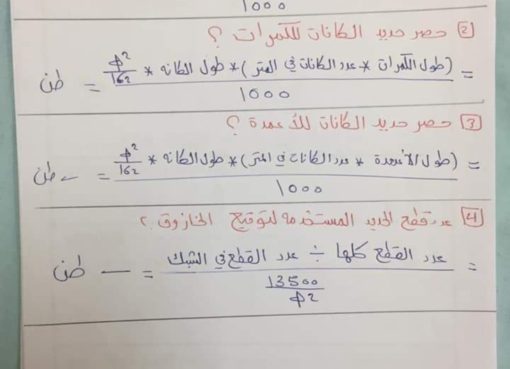 1000
[2] حصر حديد الكانات للكمرات ؟
= (طول الكمرات * عدد الكانات في المتر) * طول الكانه * ϕ²/162 = طن
1000
[3] حصر حديد الكانات للأعمدة ؟
= (طول الأعمدة * عدد الكانات في المتر) * طول الكانه * ϕ²/162 = – طن
1000
[4] عدد قطع الحديد المستخدمه لتوقيع الخازوق ؟
= عدد القطع كلها ÷ عدد القطع في الشبك = — طن
13500
ϕ2